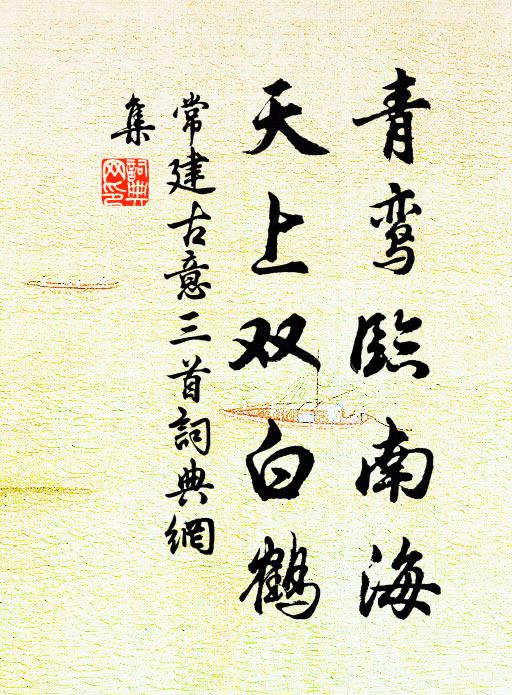 青鸾臨南海
天上双白鹤
常建古意三首詞典網
集
詞典
网印